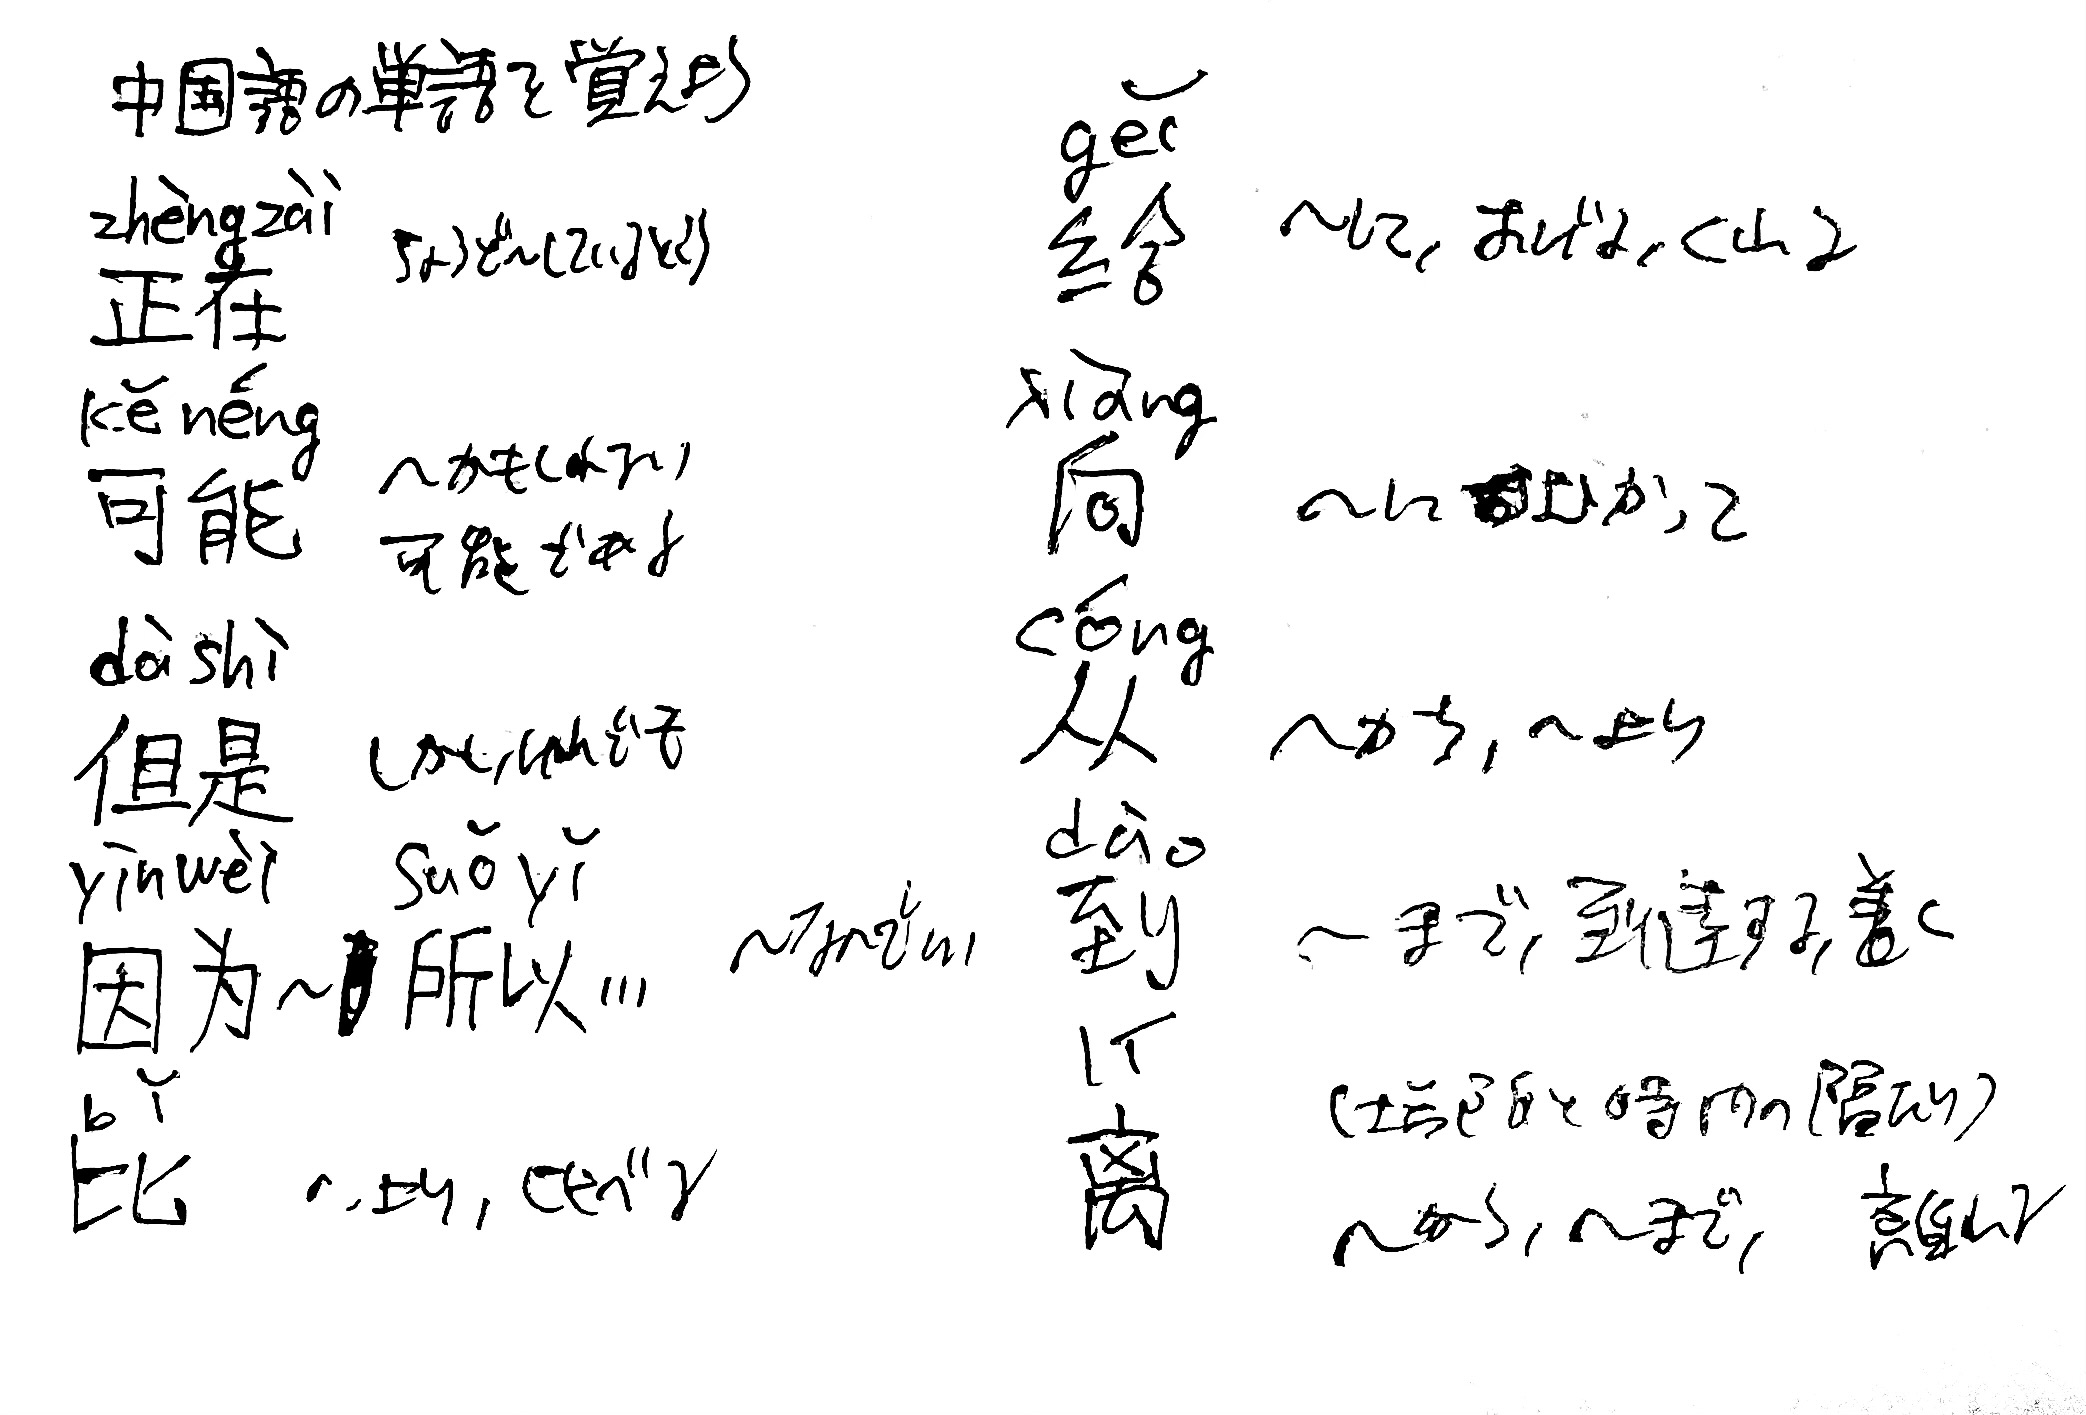 中国語の単語を覚えよう
zhèngzài
正在 ちょうど〜しているところ
kěnéng
可能 〜かもしれない
可能である
dàshì
但是 しかし,けれども
yīnwèi suǒyǐ
因为〜 所以… 〜なので…
bǐ
比 〜より,くらべる
gěi
给 〜して,あげる,くれる
xiàng
向 〜にむかって
cóng
从 〜から,〜より
dào
到 〜まで,到達する,着く
lí
离 (場所と時間の隔たり)
〜から,〜まで, 離れる